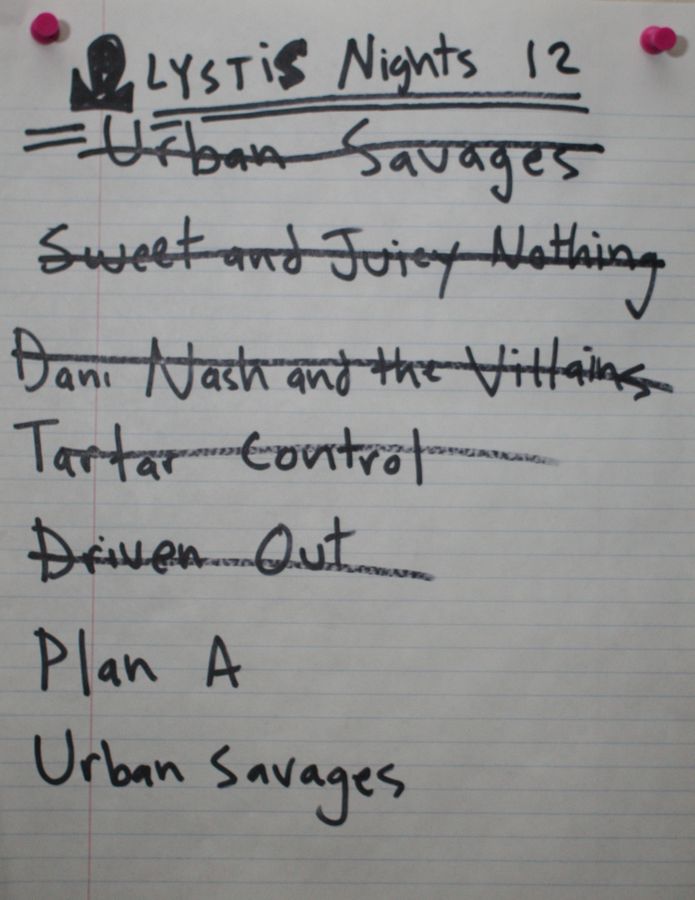 LYSTiS Nights 12
Urban Savages
Sweet and Juicy Nothing
Dani Nash and the Villains
Tartar Control
Driven Out
Plan A
Urban Savages